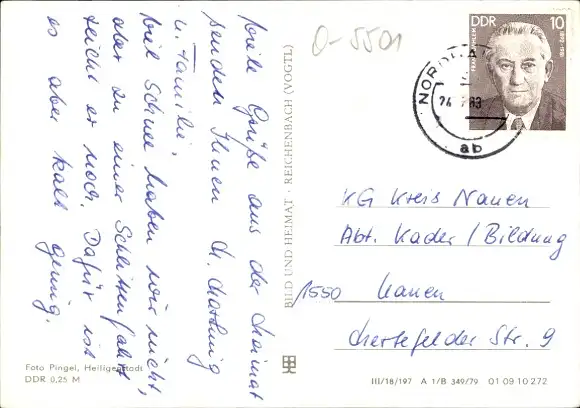 O-5501
DDR 10
NORD
24. 83
ab
viele Grüße aus der Heimat
senden Ihnen Ch. Hartung
u. Familie.
Viel Schnee haben wir nicht,
aber zu einer Schlittenfahrt
reicht er noch. Dafür ist
es aber kalt genug.
BILD UND HEIMAT · REICHENBACH (VOGTL)
KG Kreis Nauen
Abt. Kader / Bildung
1550 Nauen
Hertefelder Str. 9
Foto Pingel, Heiligenstadt
DDR 0,25 M
III/18/197 A 1/B 349/79 01 09 10 272